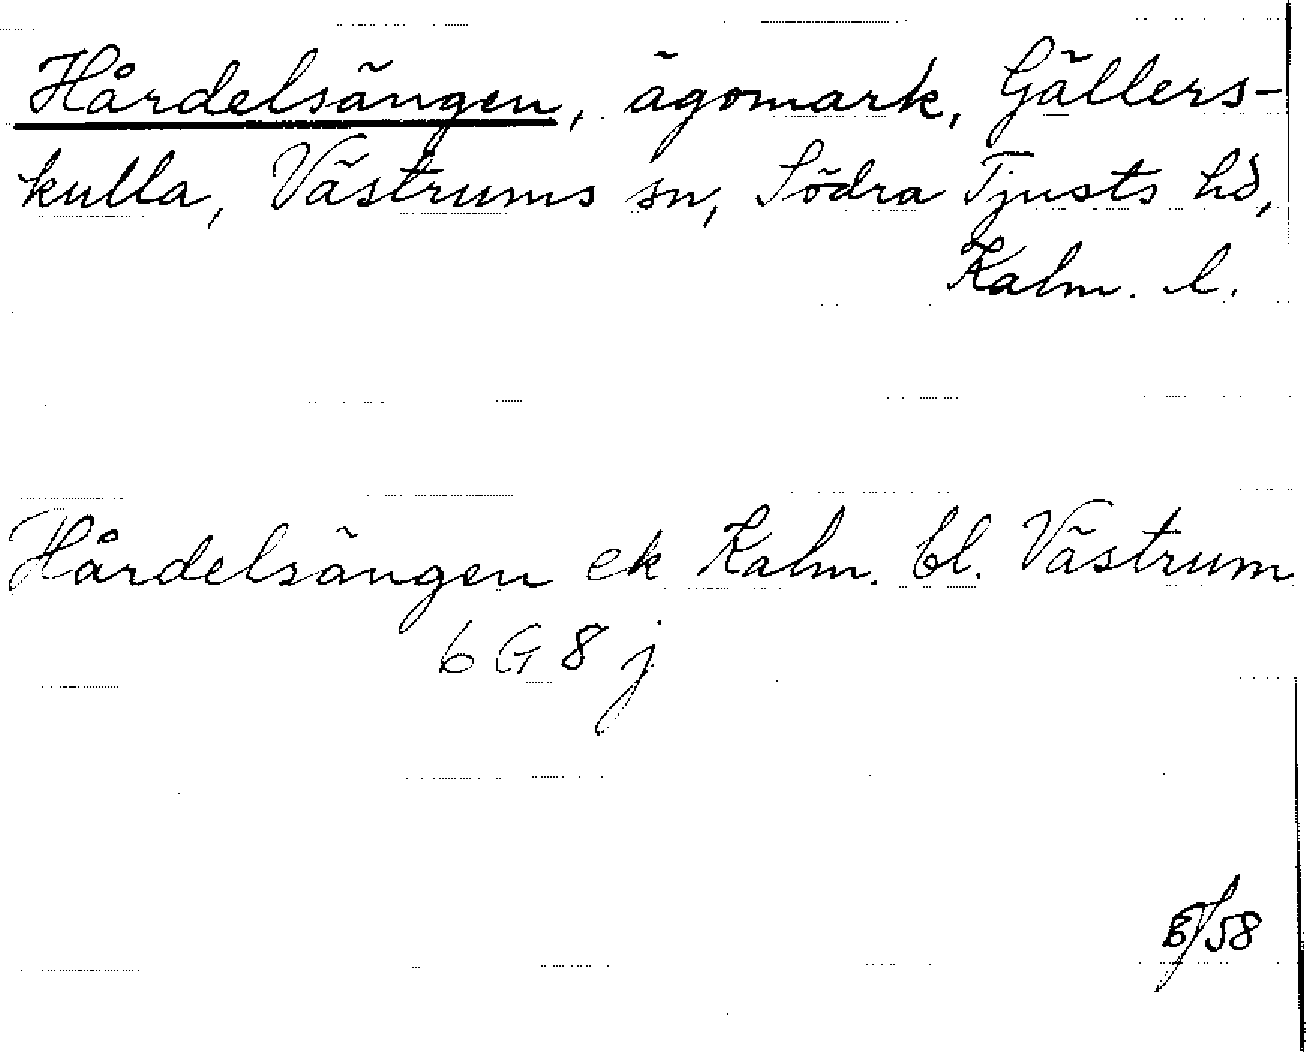 Hårdelsängen, ägomark, Gällers-
kulla, Västrums sn, Södra Tjusts hd,
Kalm. l.
Hårdelsängen ek Kalm. bl. Västrum
6 G 8 j
/58